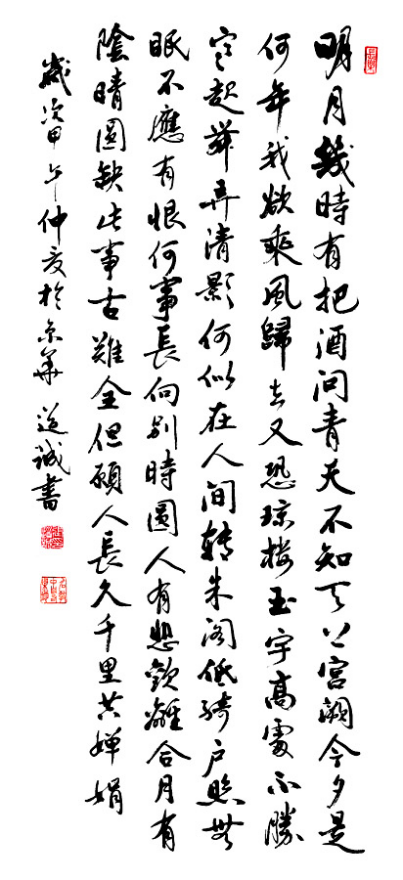 明月幾時有把酒問青天不知天上宮闕今夕是
何年我欲乘風歸去又恐琼樓玉宇高處不勝
寒起舞弄清影何似在人間轉朱閣低綺户照無
眠不應有恨何事長向别時圓人有悲歡離合月有
陰晴圓缺此事古難全但願人長久千里共嬋娟
歲次甲午仲夏於京華 道誠書